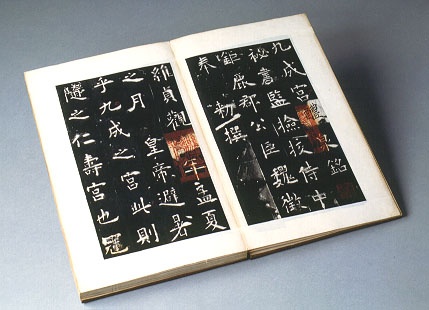 九成宮醴泉銘
祕書監檢校侍中
鉅鹿郡公臣魏徵
奉 勑撰
維貞觀年孟夏
之月 皇帝避暑
乎九成之宮此則
隨之仁壽宮也冠